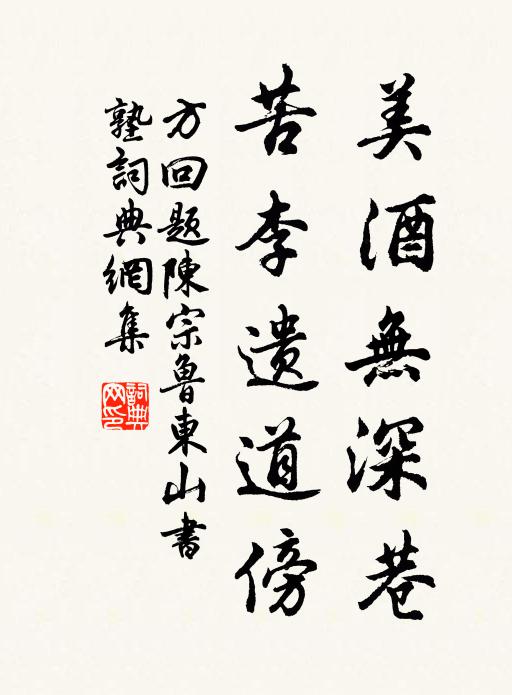 美酒無深巷
苦李遗道傍
方回题陳宗魯東山書
塾詞典網集
詞典
网印